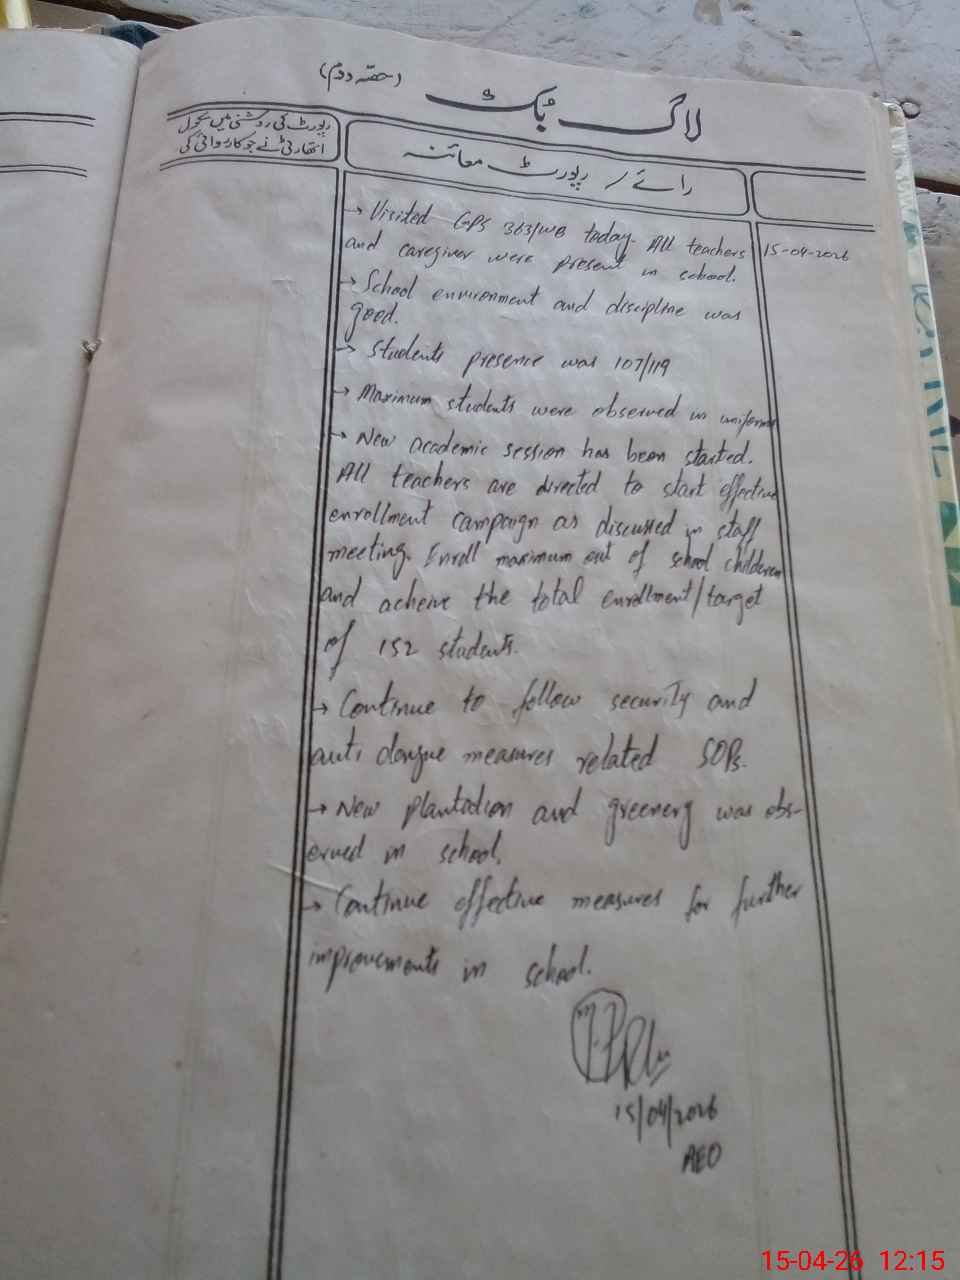 (حصّہ دوم)
لاگ بُک
رپورٹ کی روشنی میں سکول
اتھارٹی نے جو کاروائی کی
رائے / رپورٹ معائنہ
15-04-2026
→ Visited GPS 363/WB today. All teachers
and caregiver were present in school.
→ School environment and discipline was
good.
→ Students presence was 107/119
→ Maximum students were observed in uniform
→ New academic session has been started.
All teachers are directed to start effective
enrollment campaign as discussed in staff
meeting. Enroll maximum out of school childeren
and acheive the total enrollment/target
of 152 students.
→ Continue to follow security and
anti dengue measures related SOPs.
→ New plantation and greenery was obs-
erved in school.
→ Continue effective measures for further
improvements in school.
15/04/2026
AEO
15-04-26 12:15